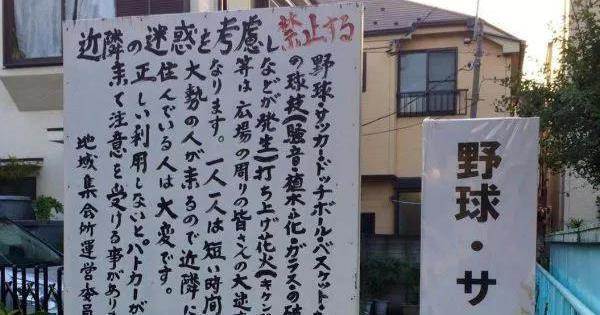 近隣の迷惑を考慮し禁止する
野球・サッカー・ドッチボール・バスケット
の球技(騒音・植木・花・ガラスの破
などが発生)打ち上げ花火(キケン
等は広場の周りの皆さんの大迷
なります。一人一人は短い時間
大勢の人が来るので近隣に
住んでいる人は大変です。
の正しい利用しないと、パトカーが
来て注意を受ける事があり
地域集会所運営委員
野球・サ